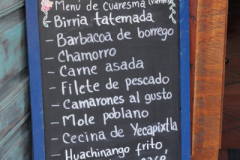 Menú de Cuaresma
Birria tatemada
- Barbacoa de borrego
- Chamorro
- Carne asada
- Filete de pescado
- Camarones al gusto
- Mole poblano
- Cecina de Yecapixtla
- Huachinango frito